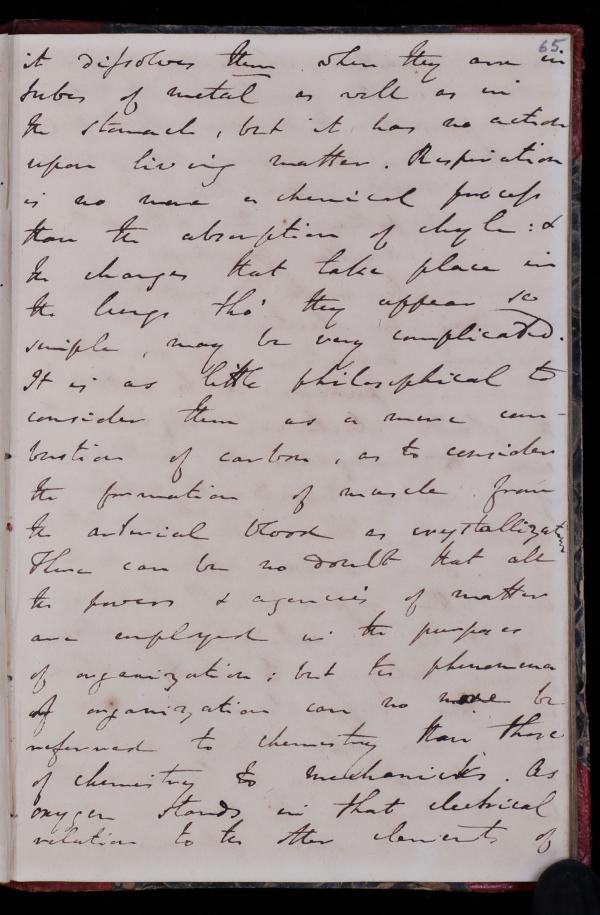 65.
it dissolves them when they are in
tubes of metal as well as in
the stomach, but it has no action
upon living matter. Respiration
is no more a chemical process
than the absorption of chyle: &
the changes that take place in
the lungs tho' they appear so
simple, may be very complicated.
It is as little philosophical to
consider them as a mere com-
bustion of carbon, as to consider
the formation of muscle from
the arterial blood as crystallization
There can be no doubt that all
the powers & agencies of matter
are employed in the purposes
of organization; but the phenomena
of organization can no more be
referred to chemistry than those
of chemistry to mechanicks. As
oxygen stands in that electrical
relation to the other elements of